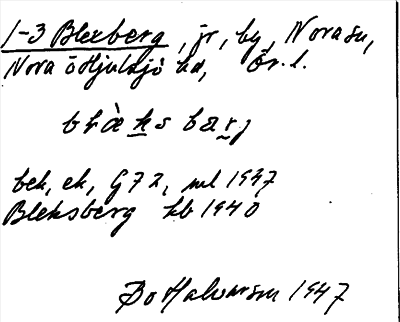 1-3 Blexberg, jr, by, Nora sn,
Nora o Hjulsjö hd, Ör. l.
blὰks bærj
bek, ek, G72, ml 1947
Bleksberg kb 1940
Bo Halvarson 1947